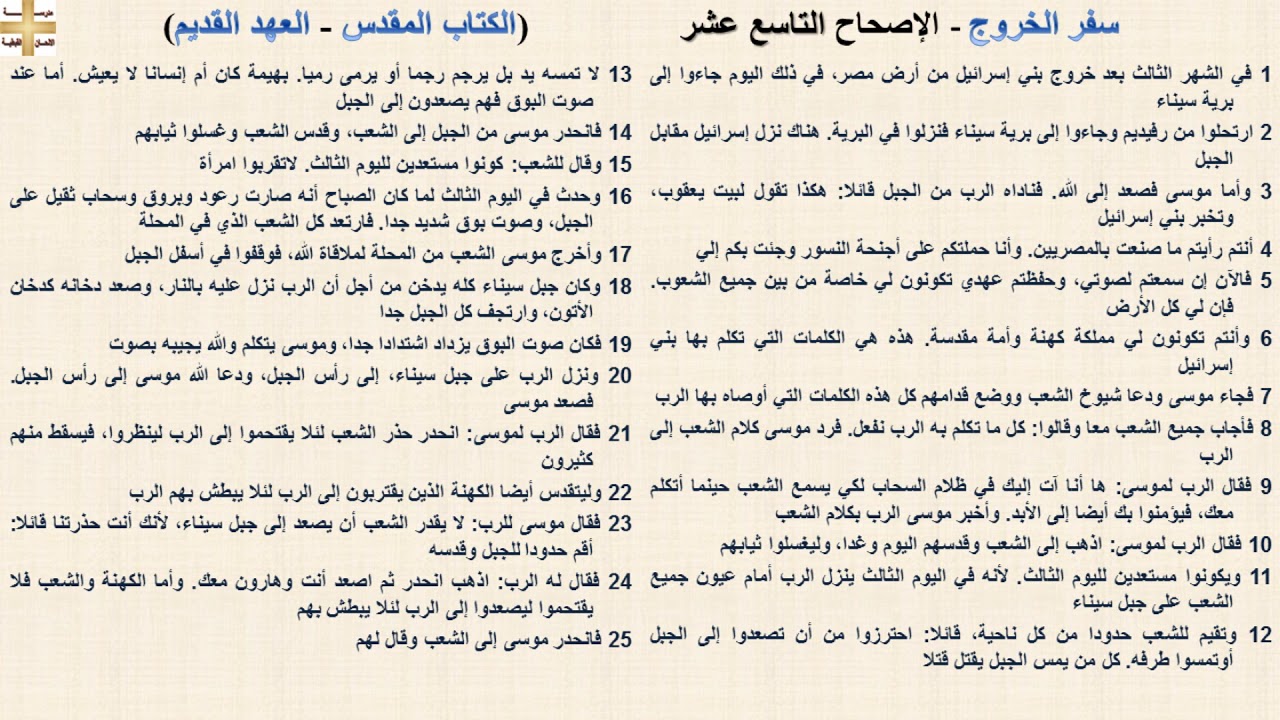 سفر الخروج - الإصحاح التاسع عشر (الكتاب المقدس - العهد القديم)
1 في الشهر الثالث بعد خروج بني إسرائيل من أرض مصر، في ذلك اليوم جاءوا إلى
برية سيناء
2 ارتحلوا من رفيديم وجاءوا إلى برية سيناء فنزلوا في البرية. هناك نزل إسرائيل مقابل
الجبل
3 وأما موسى فصعد إلى الله. فناداه الرب من الجبل قائلا: هكذا تقول لبيت يعقوب،
وتخبر بني إسرائيل
4 أنتم رأيتم ما صنعت بالمصريين. وأنا حملتكم على أجنحة النسور وجئت بكم إلي
5 فالآن إن سمعتم لصوتي، وحفظتم عهدي تكونون لي خاصة من بين جميع الشعوب.
فإن لي كل الأرض
6 وأنتم تكونون لي مملكة كهنة وأمة مقدسة. هذه هي الكلمات التي تكلم بها بني
إسرائيل
7 فجاء موسى ودعا شيوخ الشعب ووضع قدامهم كل هذه الكلمات التي أوصاه بها الرب
8 فأجاب جميع الشعب معا وقالوا: كل ما تكلم به الرب نفعل. فرد موسى كلام الشعب إلى
الرب
9 فقال الرب لموسى: ها أنا آت إليك في ظلام السحاب لكي يسمع الشعب حينما أتكلم
معك، فيؤمنوا بك أيضا إلى الأبد. وأخبر موسى الرب بكلام الشعب
10 فقال الرب لموسى: اذهب إلى الشعب وقدسهم اليوم وغدا، وليغسلوا ثيابهم
11 ويكونوا مستعدين لليوم الثالث. لأنه في اليوم الثالث ينزل الرب أمام عيون جميع
الشعب على جبل سيناء
12 وتقيم للشعب حدودا من كل ناحية، قائلا: احترزوا من أن تصعدوا إلى الجبل
أوتمسوا طرفه. كل من يمس الجبل يقتل قتلا
13 لا تمسه يد بل يرجم رجما أو يرمى رميا. بهيمة كان أم إنسانا لا يعيش. أما عند
صوت البوق فهم يصعدون إلى الجبل
14 فانحدر موسى من الجبل إلى الشعب، وقدس الشعب وغسلوا ثيابهم
15 وقال للشعب: كونوا مستعدين لليوم الثالث. لاتقربوا امرأة
16 وحدث في اليوم الثالث لما كان الصباح أنه صارت رعود وبروق وسحاب ثقيل على
الجبل، وصوت بوق شديد جدا. فارتعد كل الشعب الذي في المحلة
17 وأخرج موسى الشعب من المحلة لملاقاة الله، فوقفوا في أسفل الجبل
18 وكان جبل سيناء كله يدخن من أجل أن الرب نزل عليه بالنار، وصعد دخانه كدخان
الأتون، وارتجف كل الجبل جدا
19 فكان صوت البوق يزداد اشتدادا جدا، وموسى يتكلم والله يجيبه بصوت
20 ونزل الرب على جبل سيناء، إلى رأس الجبل، ودعا الله موسى إلى رأس الجبل.
فصعد موسى
21 فقال الرب لموسى: انحدر حذر الشعب لئلا يقتحموا إلى الرب لينظروا، فيسقط منهم
كثيرون
22 وليتقدس أيضا الكهنة الذين يقتربون إلى الرب لئلا يبطش بهم الرب
23 فقال موسى للرب: لا يقدر الشعب أن يصعد إلى جبل سيناء، لأنك أنت حذرتنا قائلا:
أقم حدودا للجبل وقدسه
24 فقال له الرب: اذهب انحدر ثم اصعد أنت وهارون معك. وأما الكهنة والشعب فلا
يقتحموا ليصعدوا إلى الرب لئلا يبطش بهم
25 فانحدر موسى إلى الشعب وقال لهم